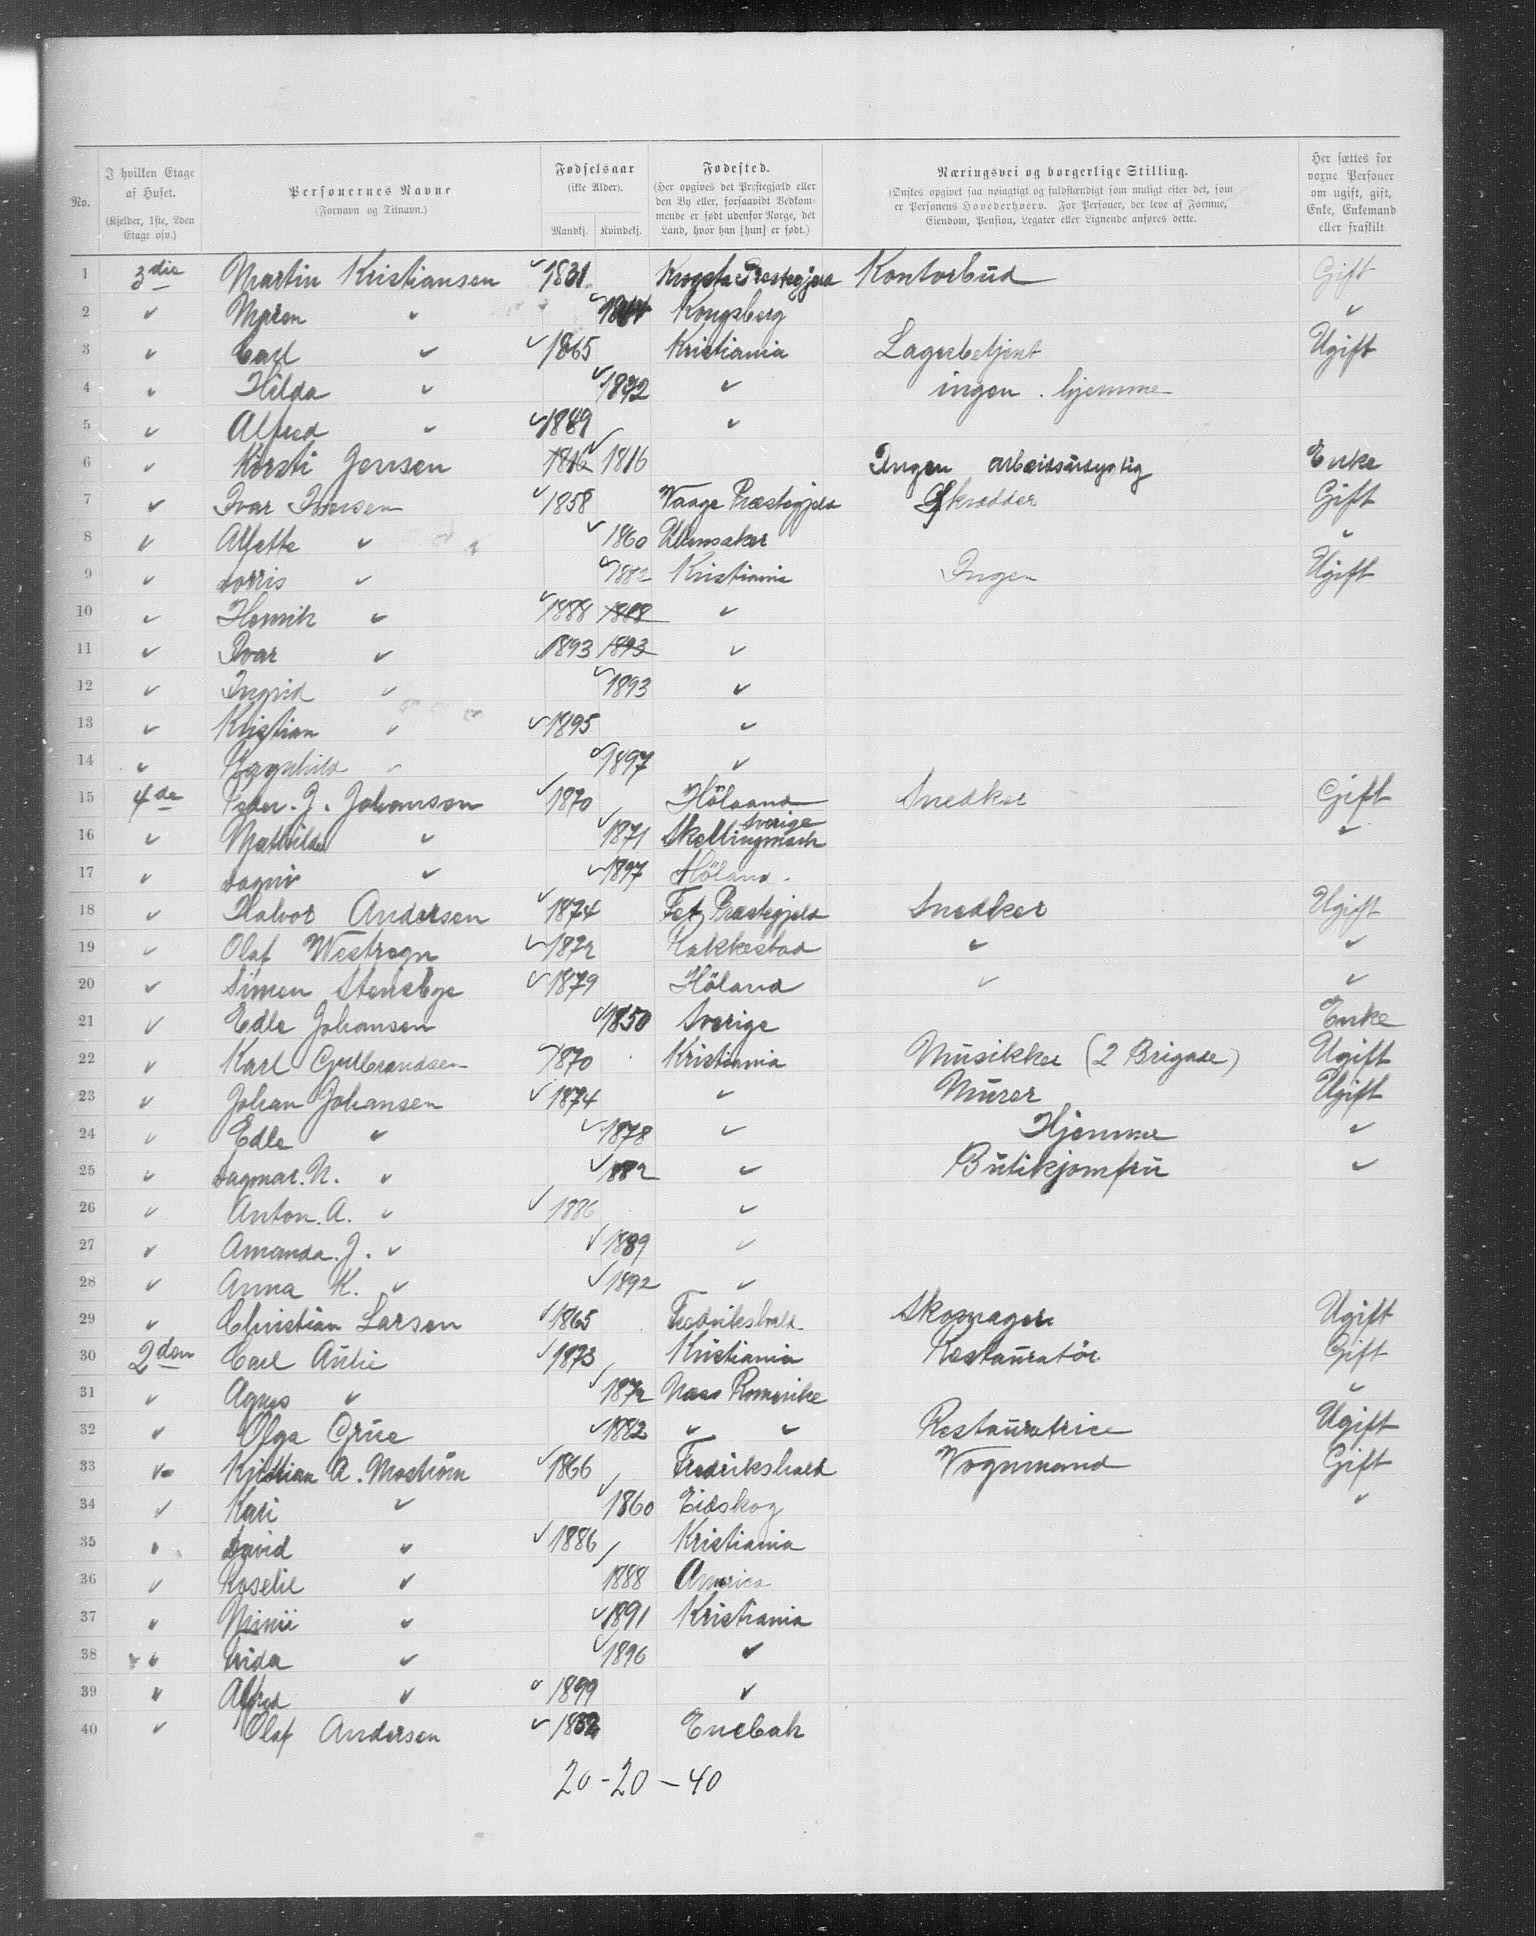 No.
I hvilken Etage af Huset.
(Kjelder, 1ste, 2den Etage osv.)
Personernes Navne
(Fornavn og Tilnavn.)
Fødselsaar
(ikke Alder).
Mandkj. Kvindekj.
Fødested.
(Her opgives det Prestegjæld eller den By eller, forsaavidt Vedkommende er født udenfor Norge, det Land, hvor han [hun] er født.)
Næringsvei og borgerlige Stilling.
(Ønskes opgivet saa nøiagtigt og fuldstændigt som muligt efter det, som er Personens Hovederhverv. For Personer, der leve af Formue, Eiendom, Pension, Legater eller Lignende anføres dette.
Her sættes for voxne Personer om ugift, gift, Enke, Enkemand eller fraskilt
1 3die Martin Kristiansen 1831 Prestegjeld Kontorbud Gift
2 " Maren " Kongsberg "
3 " Carl " 1865 Kristiania Lagerbetjent Ugift
4 " Hilda " 1872 " ingen . hjemme
5 " Alfred " 1889 "
6 " Kirsti Jensen 1816 1816 Ingen arbeidsudygtig Enke
7 " Ivar Iversen 1858 Vaage Præstegjeld Skrædder Gift
8 " Alfette " 1860 Ullensaker "
9 " Dorris " 1882 Kristiania Ingen Ugift
10 " Henrik " 1888 1888 "
11 " Ivar " 1893 1893 "
12 " Ingrid " 1893 "
13 " Kristian " 1895 "
14 " Ragnhild " 1897 "
15 4de Peder. J. Johansen 1870 Höland Snedker Gift
16 " Mathilde " 1871 Skellingmark Sverige "
17 " Dagny " 1897 Höland.
18 " Halvor Andersen 1874 Fet Præstegjeld Snedker Ugift
19 " Olaf Westregn 1872 Rakkestad " "
20 " Simen Stensbye 1879 Höland " "
21 " Edle Johansen 1850 Sverige Enke
22 " Karl Gulbrandsen 1870 Kristiania Musikker (2 Brigade) Ugift
23 " Johan Johansen 1874 " Murer Ugift
24 " Edle " 1878 " Hjemme "
25 " Dagmar. N. " 1882 " Butikjomfru "
26 " Anton. A. " 1886 "
27 " Amanda. J. " 1889 "
28 " Anna K. " 1892 "
29 " Christian Larsen 1865 Fredrikshald Skomager Ugift
30 2den Carl Aulie 1873 Kristiania Restauratör Gift
31 " Agnes " 1872 Næss Romerike "
32 " Olga Grue 1882 " " Restauratrice Ugift
33 " Kristian A. Moström 1866 Fredrikshald Vognmand Gift
34 " Kari " 1860 Eidskog "
35 " David " 1886 Kristiania
36 " Roselie " 1888 America
37 " Minii " 1891 Kristiania
38 " " 1896 "
39 " Alfred " 1899 "
40 " Olaf Andersen 1882 Enebak
20-20-40